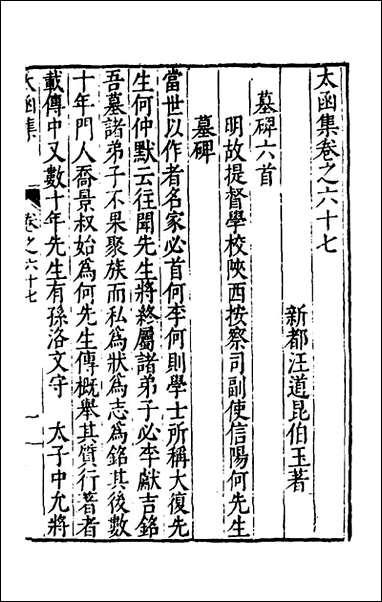 太函集卷之六十七
新都汪道昆伯玉著
墓碑六首
明故提督學校陝西按察司副使信陽何先生
墓碑
當世以作者名家必首何李何則學士所稱大復先
生何仲默云往聞先生將終屬諸弟子必李獻吉銘
吾墓諸弟子不果聚族而私為狀為志為銘其後數
十年門人喬景叔始為何先生傳概舉其質行著者
載傳中又數十年先生有孫洛文守 太子中允將
太函集 卷之六十七 一